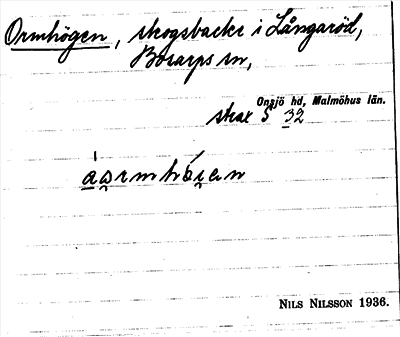 Ormhögen, skogsbacke i Långaröd,
Bosarps sn,
Onsjö hd, Malmöhus län.
skax S 32
NILS NILSSON 1936.